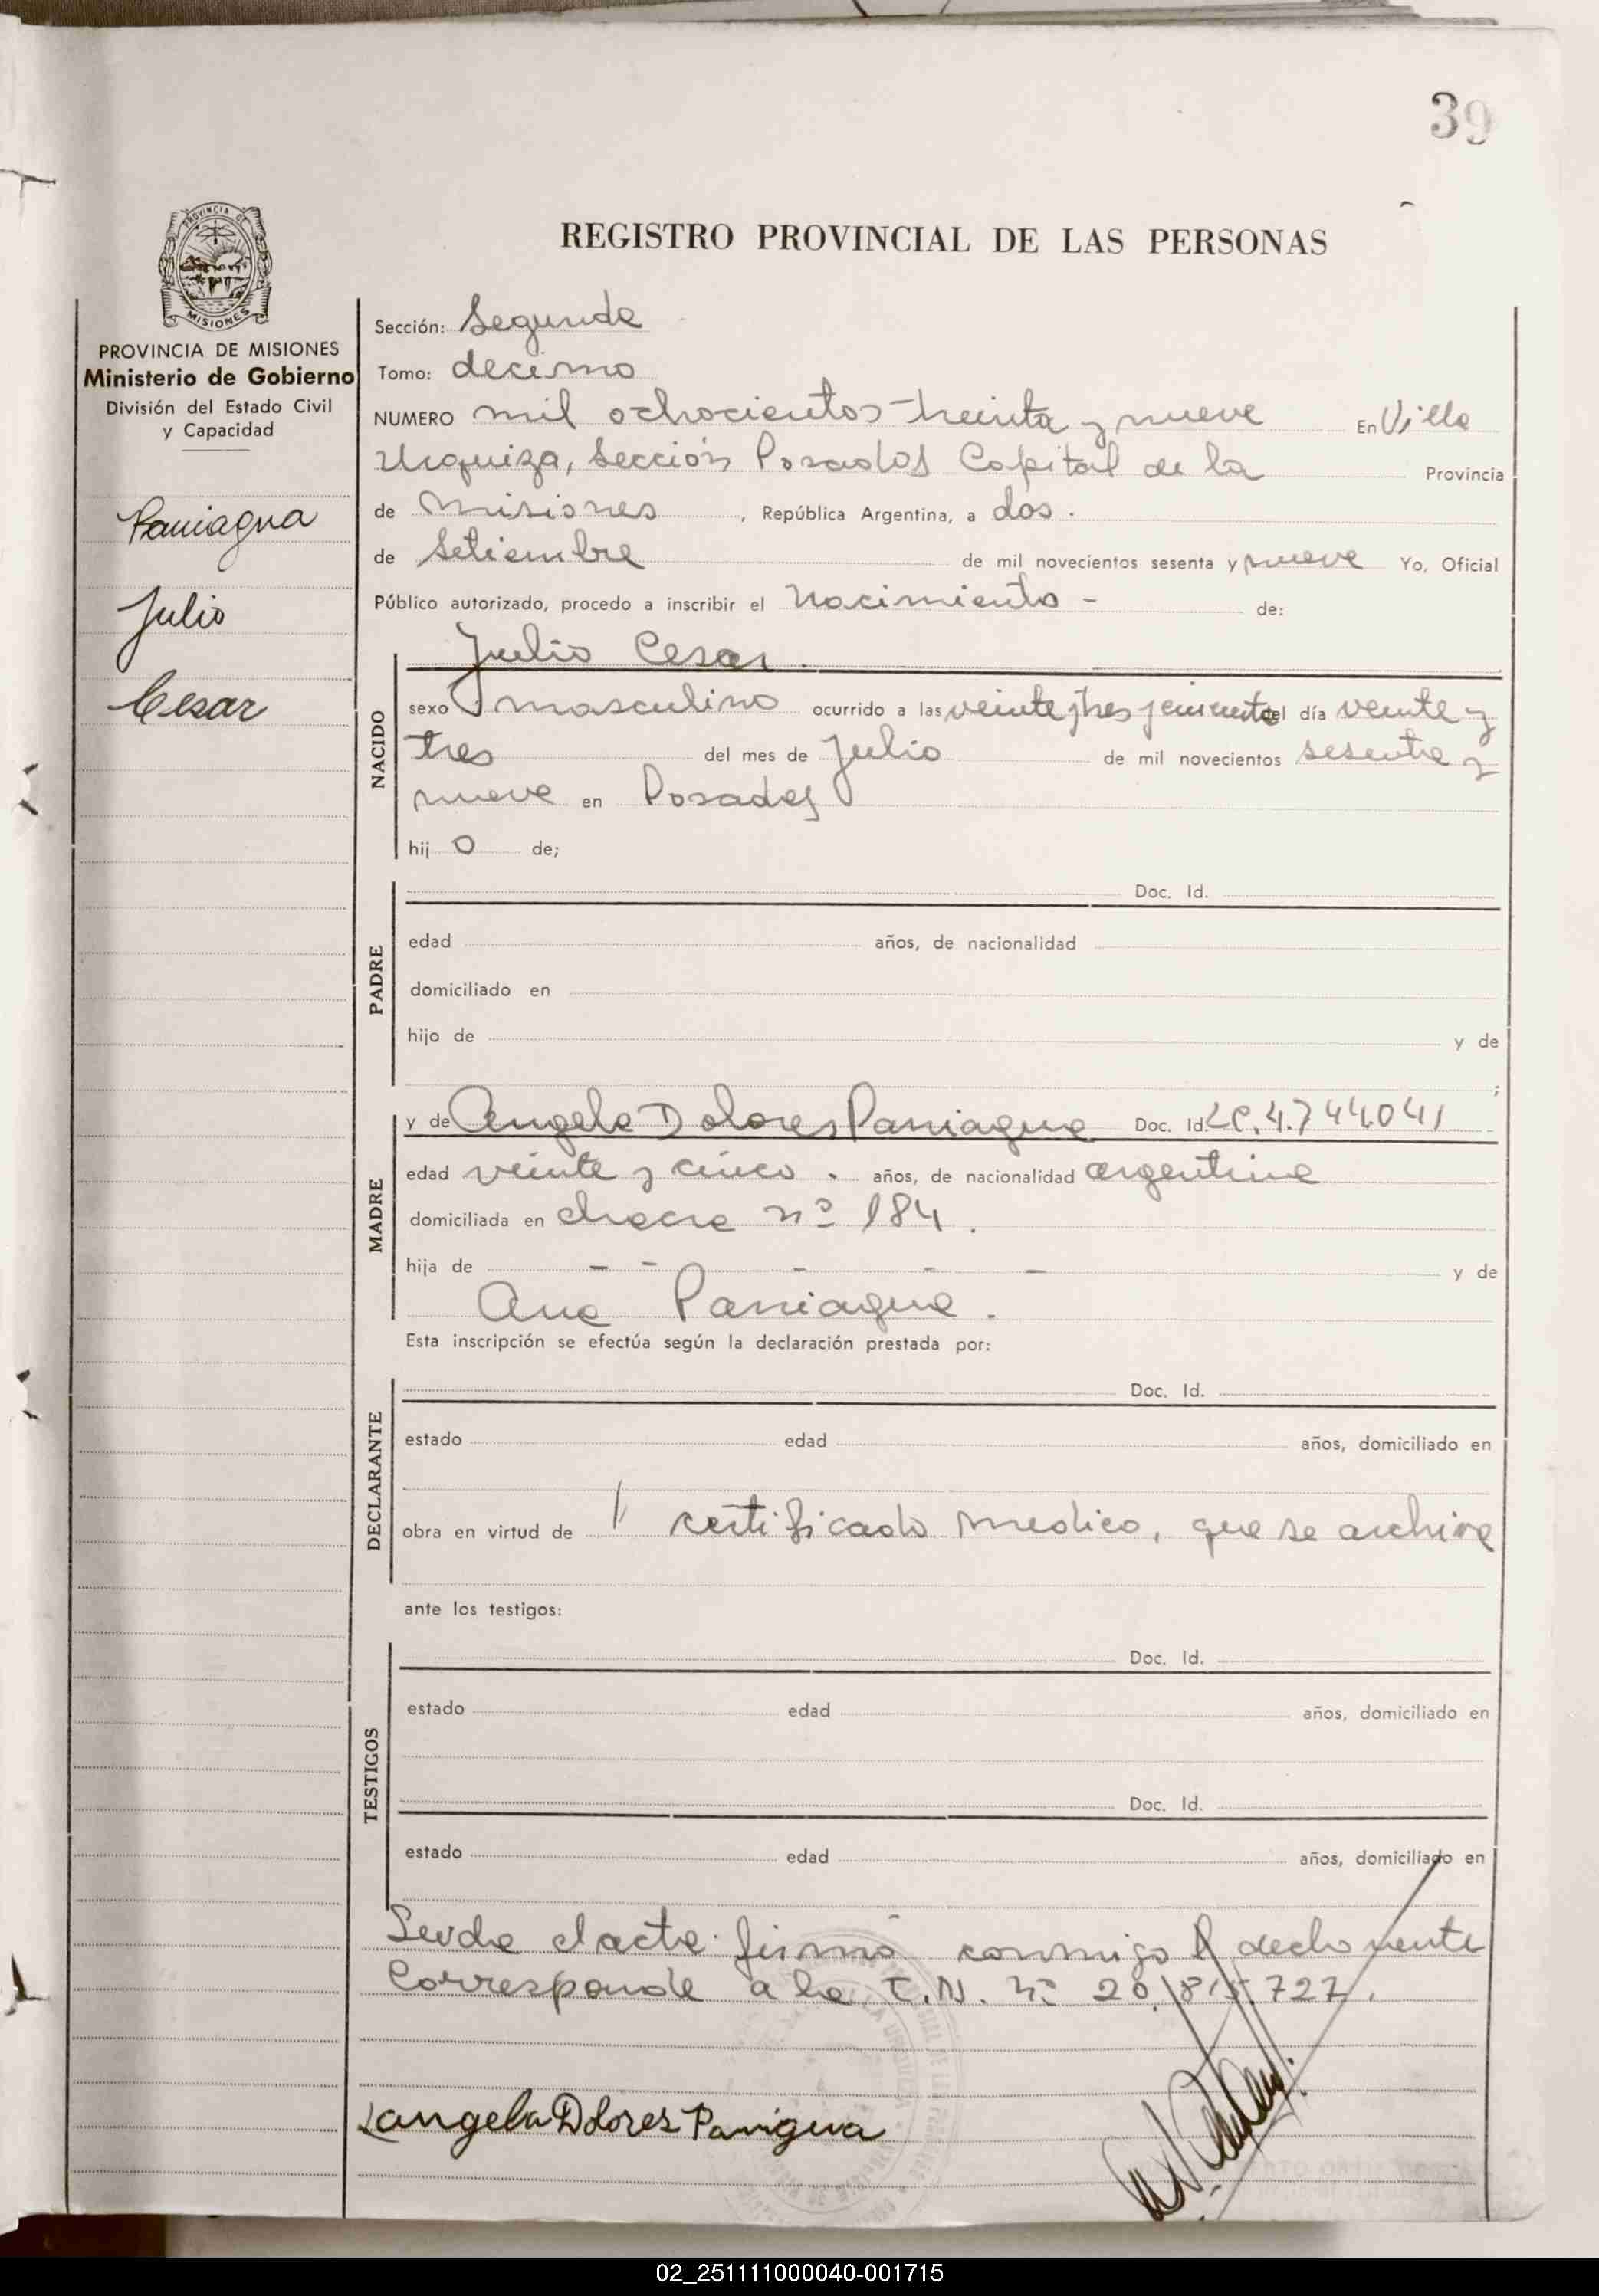 39
PROVINCIA DE
MISIONES
REGISTRO PROVINCIAL DE LAS PERSONAS
PROVINCIA DE MISIONES
Ministerio de Gobierno
División del Estado Civil
y Capacidad
Paniagua
Julio
Cesar
Sección: Segunda
Tomo: decimo
NUMERO mil ochocientos treinta y nueve En Villa
Urquiza, Sección Posadas Capital de la Provincia
de Misiones, República Argentina, a dos.
de Setiembre de mil novecientos sesenta y nueve Yo, Oficial
Público autorizado, procedo a inscribir el Nacimiento - de:
NACIDO
Julio Cesar.
sexo masculino ocurrido a las veinte y tres y cincuenta del día veinte y
tres del mes de Julio de mil novecientos sesenta y
nueve en Posadas
hij o de;
PADRE
Doc. Id.
edad años, de nacionalidad
domiciliado en
hijo de y de
;
MADRE
y de Angela Dolores Paniagua Doc. Id. LC. 4.744.041
edad veinte y cinco. años, de nacionalidad argentina
domiciliada en chacra nº 184.
hija de - - - - - y de
Ana Paniagua.
Esta inscripción se efectúa según la declaración prestada por:
DECLARANTE
Doc. Id.
estado edad años, domiciliado en
obra en virtud de certificado medico, que se archiva
ante los testigos:
TESTIGOS
Doc. Id.
estado edad años, domiciliado en
Doc. Id.
estado edad años, domiciliado en
Leida el acta firmó conmigo la declarante
Corresponde a la T.N. nº 20.815.727.
Angela Dolores Panigua
02_251111000040-001715